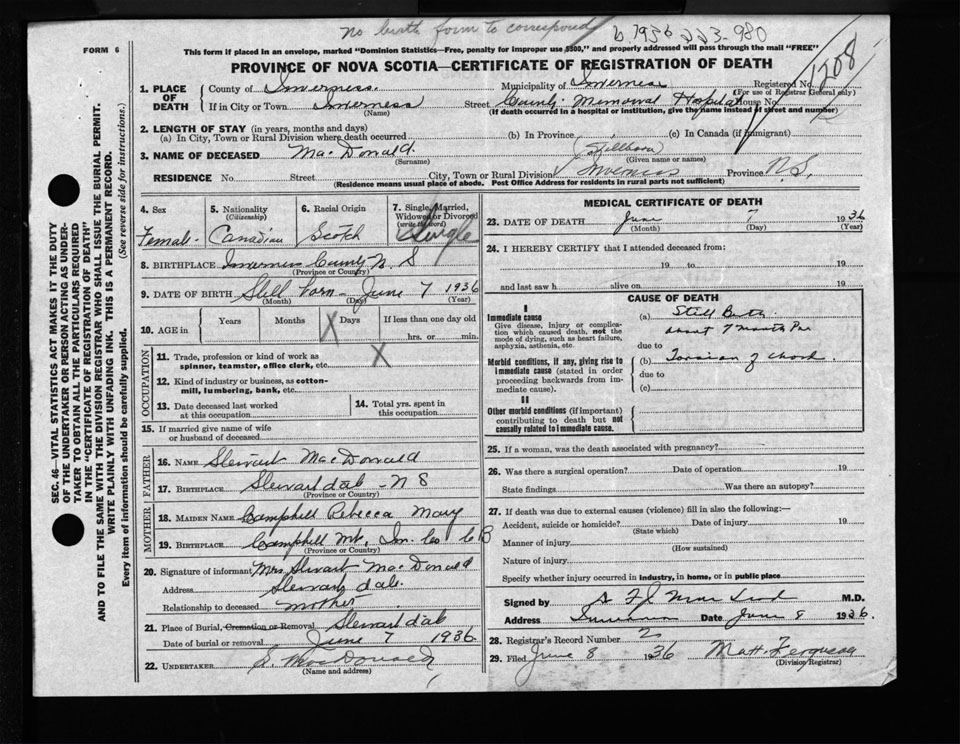 No birth form to correspond b 1936 223-980
FORM 6
This form if placed in an envelope, marked "Dominion Statistics—Free, penalty for improper use $300," and properly addressed will pass through the mail "FREE"
PROVINCE OF NOVA SCOTIA—CERTIFICATE OF REGISTRATION OF DEATH
1208
1. PLACE OF DEATH
County of Inverness. Municipality of Inverness Registered No.
(For use of Registrar General only)
If in City or Town Inverness Street County Memorial Hospital House No.
(Name) (If death occurred in a hospital or institution, give the name instead of street and number)
2. LENGTH OF STAY (in years, months and days)
(a) In City, Town or Rural Division where death occurred (b) In Province (c) In Canada (if immigrant)
3. NAME OF DECEASED MacDonald. (Stillborn)
(Surname) (Given name or names)
RESIDENCE No. Street City, Town or Rural Division Inverness Province N.S.
(Residence means usual place of abode. Post Office Address for residents in rural parts not sufficient)
SEC. 46—VITAL STATISTICS ACT MAKES IT THE DUTY
OF THE UNDERTAKER OR PERSON ACTING AS UNDER-
TAKER TO OBTAIN ALL THE PARTICULARS REQUIRED
IN THE "CERTIFICATE OF REGISTRATION OF DEATH"
AND TO FILE THE SAME WITH THE DIVISION REGISTRAR WHO SHALL ISSUE THE BURIAL PERMIT.
WRITE PLAINLY WITH UNFADING INK. THIS IS A PERMANENT RECORD.
(See reverse side for instructions.)
Every item of information should be carefully supplied.
4. Sex
Female.
5. Nationality
(Citizenship)
Canadian
6. Racial Origin
Scotch
7. Single, Married,
Widowed or Divorced
(write the word)
Single
8. BIRTHPLACE Inverness County N. S
(Province or Country)
9. DATE OF BIRTH Still born June 7 1936
(Month) (Day) (Year)
10. AGE in Years Months Days If less than one day old
X
hrs. or min.
OCCUPATION
11. Trade, profession or kind of work as
spinner, teamster, office clerk, etc. X
12. Kind of industry or business, as cotton-
mill, lumbering, bank, etc.
13. Date deceased last worked
at this occupation
14. Total yrs. spent in
this occupation
15. If married give name of wife
or husband of deceased
FATHER
16. NAME Stewart MacDonald
17. BIRTHPLACE Stewartdale - N S
(Province or Country)
MOTHER
18. MAIDEN NAME Campbell Rebecca Mary
19. BIRTHPLACE Campbell Mt, In. Co C B
(Province or Country)
20. Signature of informant Mrs Stewart MacDonald
Address Stewartdale.
Relationship to deceased mother
21. Place of Burial, Cremation or Removal Stewartdale
Date of burial or removal June 7 1936.
22. UNDERTAKER S. MacDonald
(Name and address)
MEDICAL CERTIFICATE OF DEATH
23. DATE OF DEATH June 7 1936
(Month) (Day) (Year)
24. I HEREBY CERTIFY that I attended deceased from:
19 to 19
and last saw h alive on 19
CAUSE OF DEATH
I
Immediate cause
Give disease, injury or complica-
tion which caused death, not the
mode of dying, such as heart failure,
asphyxia, asthenia, etc.
(a) Still Birth
about 7 months
due to
Morbid conditions, if any, giving rise to
immediate cause (stated in order
proceeding backwards from im-
mediate cause).
(b) Torsion of chord.
due to
(c)
II
Other morbid conditions (if important)
contributing to death but not
causally related to immediate cause.
25. If a woman, was the death associated with pregnancy?
26. Was there a surgical operation? Date of operation 19
State findings Was there an autopsy?
27. If death was due to external causes (violence) fill in also the following:—
Accident, suicide or homicide? Date of injury 19
(State which)
Manner of injury
(How sustained)
Nature of injury
Specify whether injury occurred in industry, in home, or in public place
Signed by MacLeod M.D.
Address Inverness Date June 8 1936.
28. Registrar's Record Number 2
29. Filed June 8 1936 Matt. Ferguson
(Division Registrar)